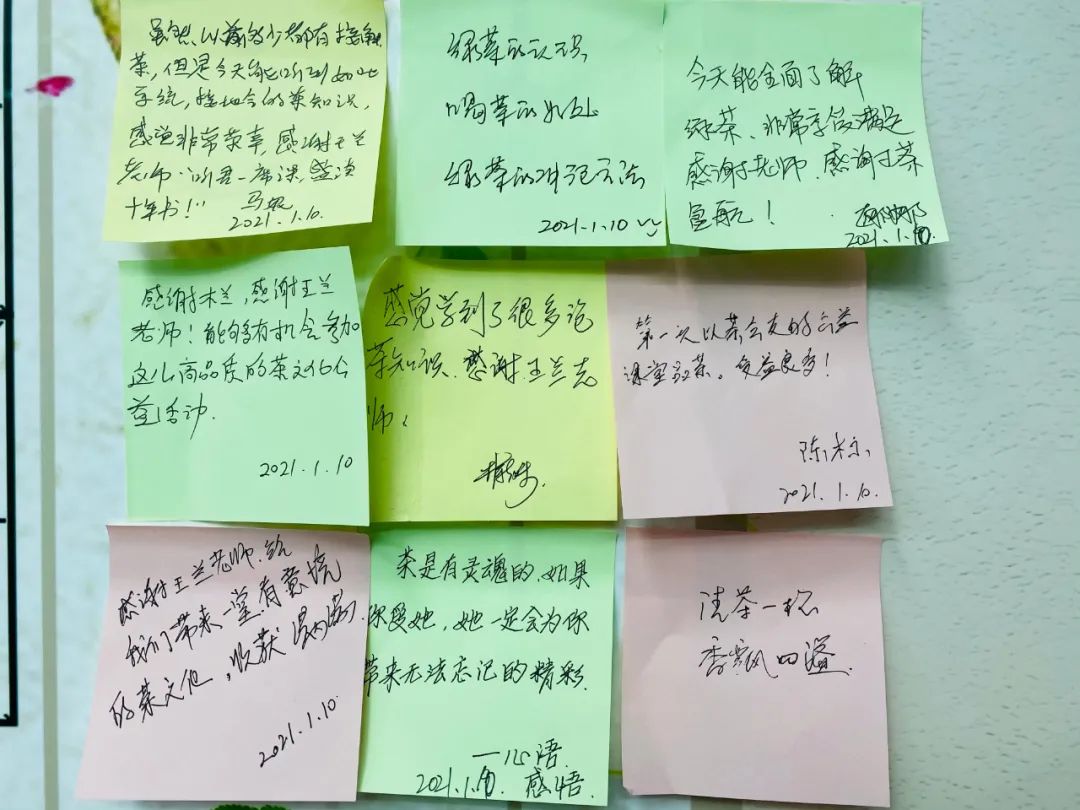 虽然以前多少都有接触
茶,但是今天能听到如此
系统,接地气的茶知识,
感觉非常荣幸,感谢王兰
老师“听君一席课,胜读
十年书!”
2021.1.10.
绿茶的认识
喝茶的好处
绿茶的冲泡方法
2021.1.10
今天能全面了解
绿茶、非常幸福满足
感谢老师.感谢
!
2021.1.10.
感谢木兰,感谢王兰
老师!能够有机会参加
这么高品质的茶文化公
益活动.
2021.1.10
感觉学到了很多泡
茶知识.感谢王兰老
师.
第一次以茶会友的公益
课堂 茶。受益良多!
陈标
2021.1.10.
感谢王兰老师.给
我们带来一堂有意境
的茶文化,收获满满
2021.1.10
茶是有灵魂的.如果
你爱她,她一定会为你
带来无法忘记的精彩.
一心语.
2021.1.10. 感悟.
清茶一杯
香飘四溢.